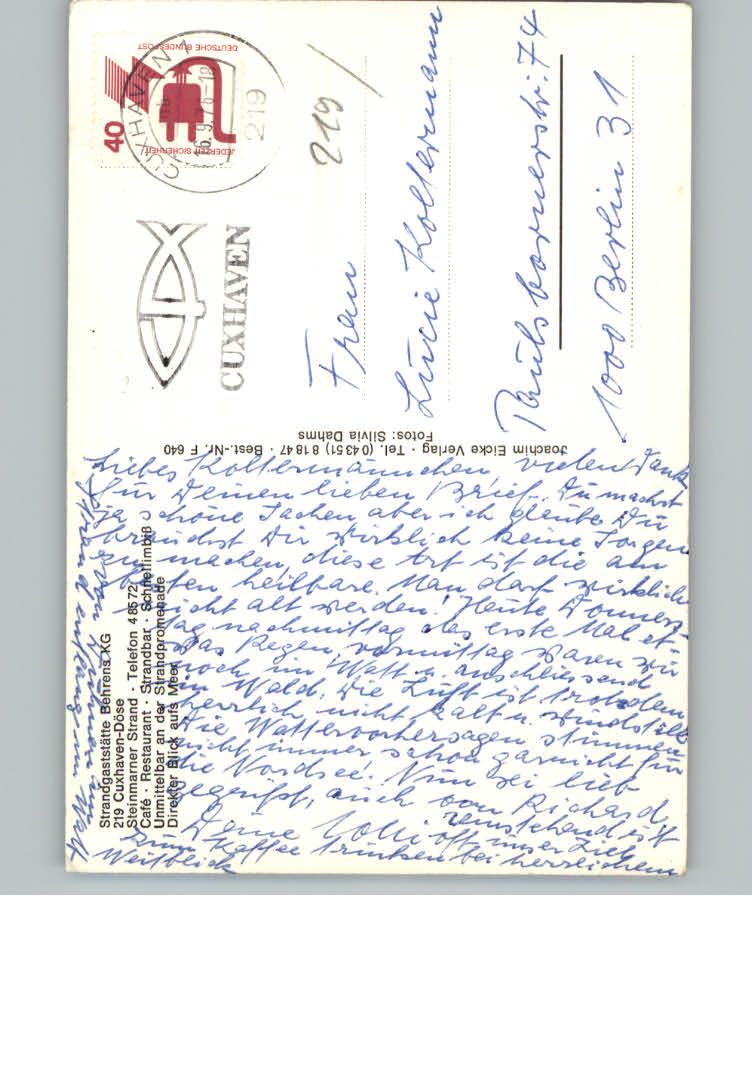 Strandgaststätte Behrens KG
219 Cuxhaven-Döse
Steinmarner Strand · Telefon 48572
Café · Restaurant · Strandbar · Schnellimbiß
Unmittelbar an der Strandpromenade
Direkter Blick aufs Meer
Liebes Koltermännchen, vielen Dank
für Deinen lieben Brief. Du machst
ja schöne Sachen, aber ich glaube Du
brauchst Dir wirklich keine Sorgen
zu machen, diese Art ist die am
besten heilbare. Man darf wirklich
nicht alt werden! Heute Donners-
tag nachmittag das erste Mal et-
was Regen, vormittag waren wir
noch im Watt u. anschliessend
im Wald. Die Luft ist trotzdem
herrlich nicht kalt u. windstill
Die Wettervorhersagen stimmen
nicht immer schon garnicht für
die Nordsee. Nun sei lieb
gegrüßt, auch von Richard
Deine Lolli
umstehend ist
oft unser Ziel
zum Kaffee trinken bei herrlichem
Weitblick
Strand entlang
Joachim Eicke Verlag · Tel. (04351) 81847 · Best.-Nr. F 640
Fotos: Silvia Dahms
DEUTSCHE BUNDESPOST
40
JEDERZEIT SICHERHEIT
CUXHAVEN 1
219
CUXHAVEN
219
Frau
Lucie Koltermann
Paulsbornerstr. 74
1000 Berlin 31